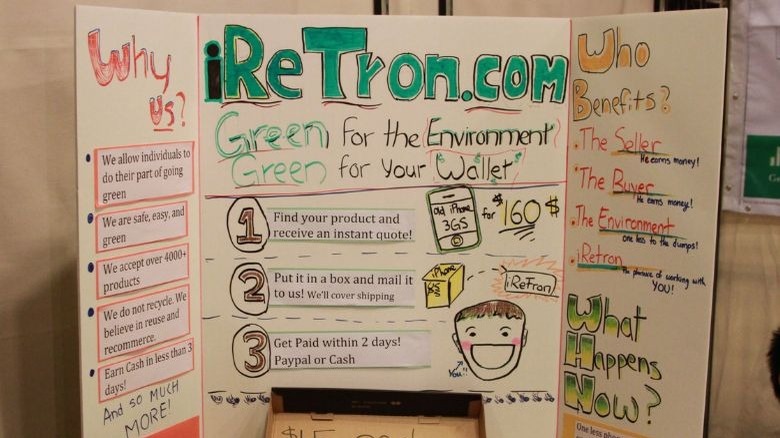 Why
us?
We allow individuals to
do their part of going
green
We are safe, easy, and
green
We accept over 4000+
products
We do not recycle. We
believe in reuse and
recommerce.
Earn Cash in less than 3
days!
And so MUCH
MORE!
iReTron.com
Green for the Environment
Green for your Wallet
1
Find your product and
receive an instant quote!
old iPhone
3GS
for $160$
2
Put it in a box and mail it
to us! We'll cover shipping
iPhone
3GS
iReTron
3
Get Paid within 2 days!
Paypal or Cash
You!!
Who
Benefits?
The Seller
He earns money!
The Buyer
He earns money!
The Environment
one less to the dumps!
iRetron
The pleasure of working with
YOU!
What
Happens
Now?
One less pho